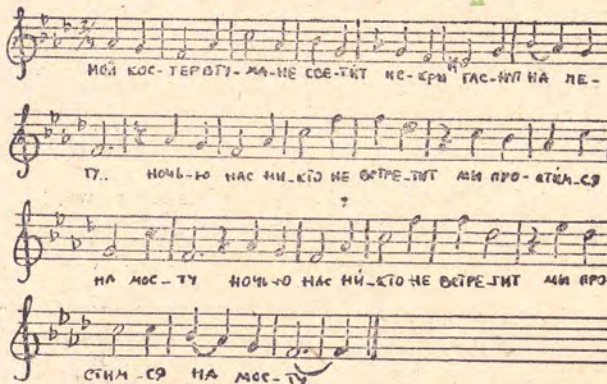 МОЙ КОС-ТЕР В ТУ-МА-НЕ СВЕ-ТИТ ИС-КРЫ ГАС-НУТ НА ЛЕ-
ТУ.. НОЧЬ-Ю НАС НИ-КТО НЕ ВСТРЕ-ТИТ МЫ ПРО-СТИМ-СЯ
НА МОС-ТУ НОЧЬ-Ю НАС НИ-КТО НЕ ВСТРЕ-ТИТ МЫ ПРО
СТИМ-СЯ НА МОС-ТУ